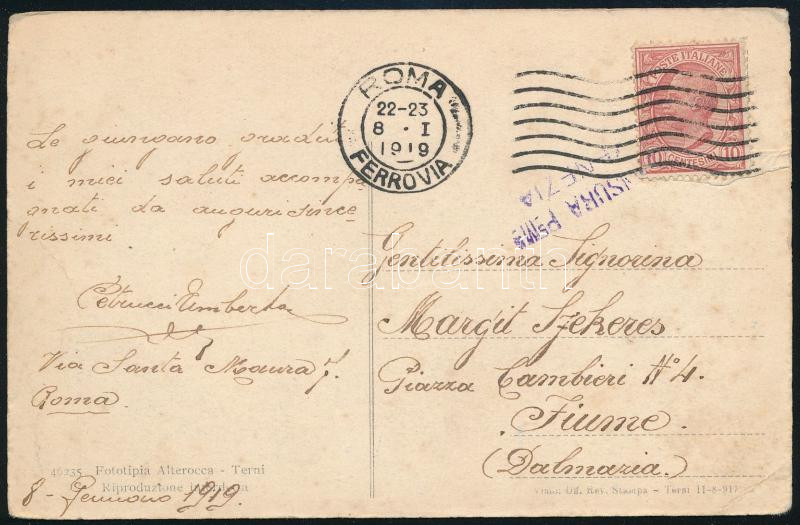 Le giungano graditi
i miei saluti accompa
gnati da auguri since
rissimi
Petrucci Umberto
Via Santa Maura 7.
Roma
46235 Fototipia Alterocca - Terni
Riproduzione interdetta
8 - Gennaio 1919.
ROMA
22-23
8 · I
1919
FERROVIA
POSTE ITALIANE
10 CENTESIMI 10
NSURA
NEZIA
Gentilissima Signorina
Margit Szekeres
Piazza Cambieri N° 4.
Fiume.
(Dalmazia.)
Off. Rev. Stampa - Terni 11-8-917
darabanth